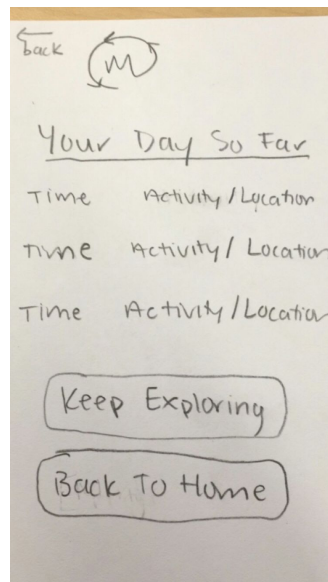 back
M
Your Day So Far
Time Activity/Location
Time Activity/Location
Time Activity/Location
Keep Exploring
Back To Home